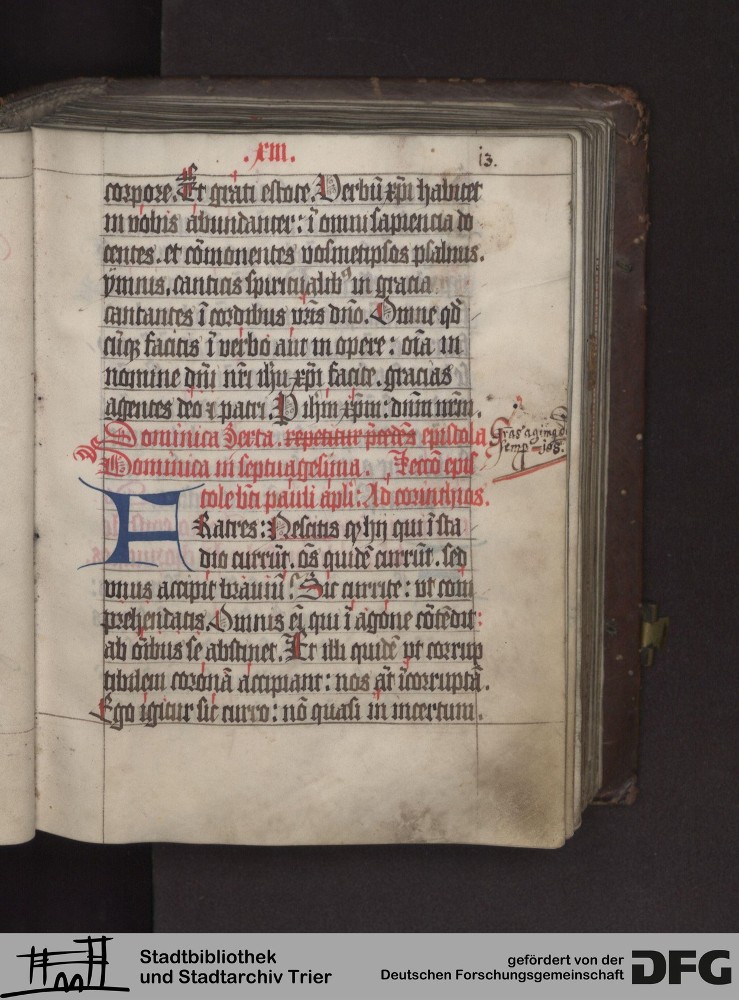 .xiii.
13.
corpore. Et grati estote. Verbū xp̄i habitet
in vobis abundanter: ī omni sapiencia do
centes. et cōmonentes vosmetipsos psalmis.
ymnis. canticis spiritualibꝰ in gracia
cantantes ī cordibus vr̄is dn̄o. Omne qd̄
cūqꝫ facitis ī verbo aut in opere: oīa in
nomine dn̄i nr̄i ihū xp̄i facite. gracias
agentes deo ⁊ patri. P ihm̄ xp̄m: dn̄m nr̄m.
Dominica Sexta. repetitur p̄cedēs epistola
Gr̄as agim9
semp
Dominica in septuagesima. Lectō epis
tole bt̄i pauli apl̄i: Ad corinthios.
FRatres: Nescitis qꝫ hij qui ī sta
dio currūt. oēs quidē currūt. sed
vnus accipit brauiū? Sic currite: vt com
prehendatis. Omnis ei̅ qui ī agone cōtēdit:
ab oībus se abstinet. Et illi quidē vt corrup
tibilem coronā accipiant: nos āt īcorruptā.
Ego igitur sic curro: nō quasi in incertum.
Stadtbibliothek
und Stadtarchiv Trier
gefördert von der
Deutschen Forschungsgemeinschaft
DFG